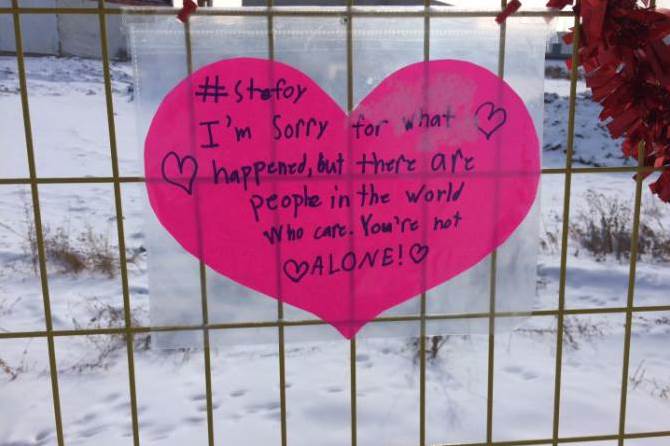 #Stefoy
I'm Sorry for what
happened, but there are
people in the world
Who care. You're not
ALONE!